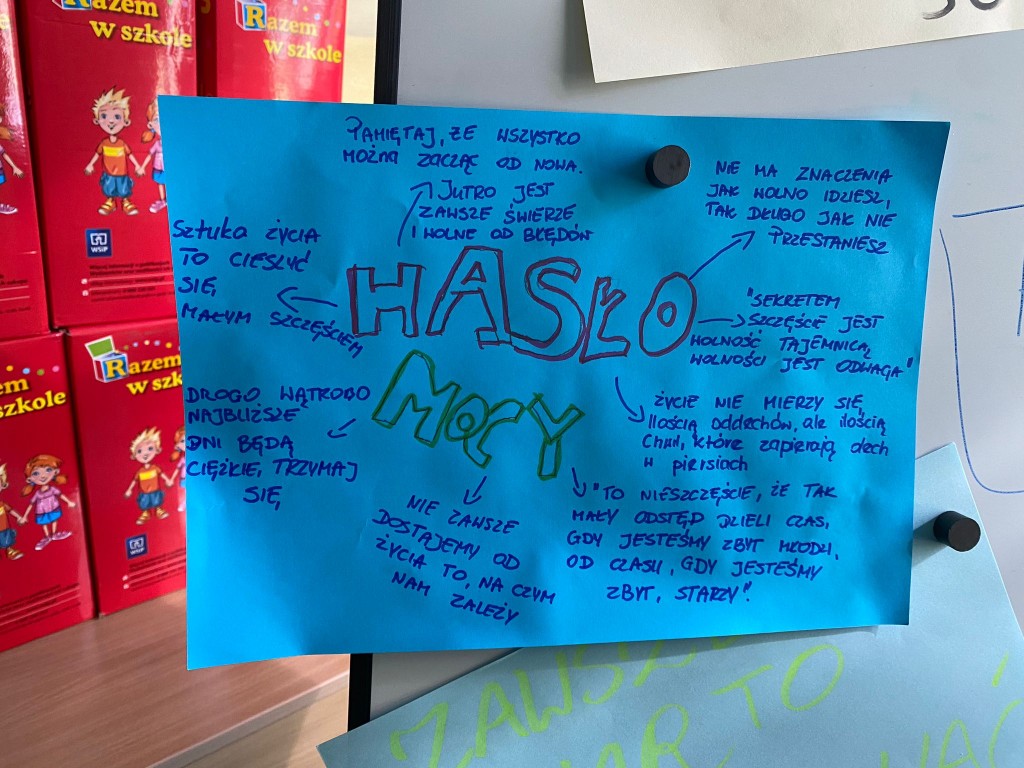 Razem
w szkole
Razem
w szkole
WSiP
Razem
w szk
szkole
WSiP
PAMIĘTAJ, ŻE WSZYSTKO
MOŻNA ZACZĄĆ OD NOWA.
JUTRO JEST
ZAWSZE ŚWIERZE
I WOLNE OD BŁĘDÓW
NIE MA ZNACZENIA
JAK WOLNO IDZIESZ,
TAK DŁUGO JAK NIE
PRZESTANIESZ
Sztuka życia
TO CIESZYĆ
SIĘ
MAŁYM SZCZĘŚCIEM
HASŁO
MOCY
"SEKRETEM
SZCZĘŚCIE JEST
WOLNOŚĆ TAJEMNICĄ,
WOLNOŚCI JEST ODWAGA"
DROGO WĄTROBO
NAJBLIŻSZE
DNI BĘDĄ
CIĘŻKIE, TRZYMAJ
SIĘ
ŻYCIE NIE MIERZY SIĘ
Ilością oddechów, ale ilością
Chwil, które zapierają dech
w piersiach
NIE ZAWSZE
DOSTAJEMY OD
ŻYCIA TO, NA CZYM
NAM ZALEŻY
"TO NIESZCZĘŚCIE, ŻE TAK
MAŁY ODSTĘP DZIELI CZAS,
GDY JESTEŚMY ZBYT MŁODZI,
OD CZASU, GDY JESTEŚMY
ZBYT, STARZY".
ZAWSZE
TO